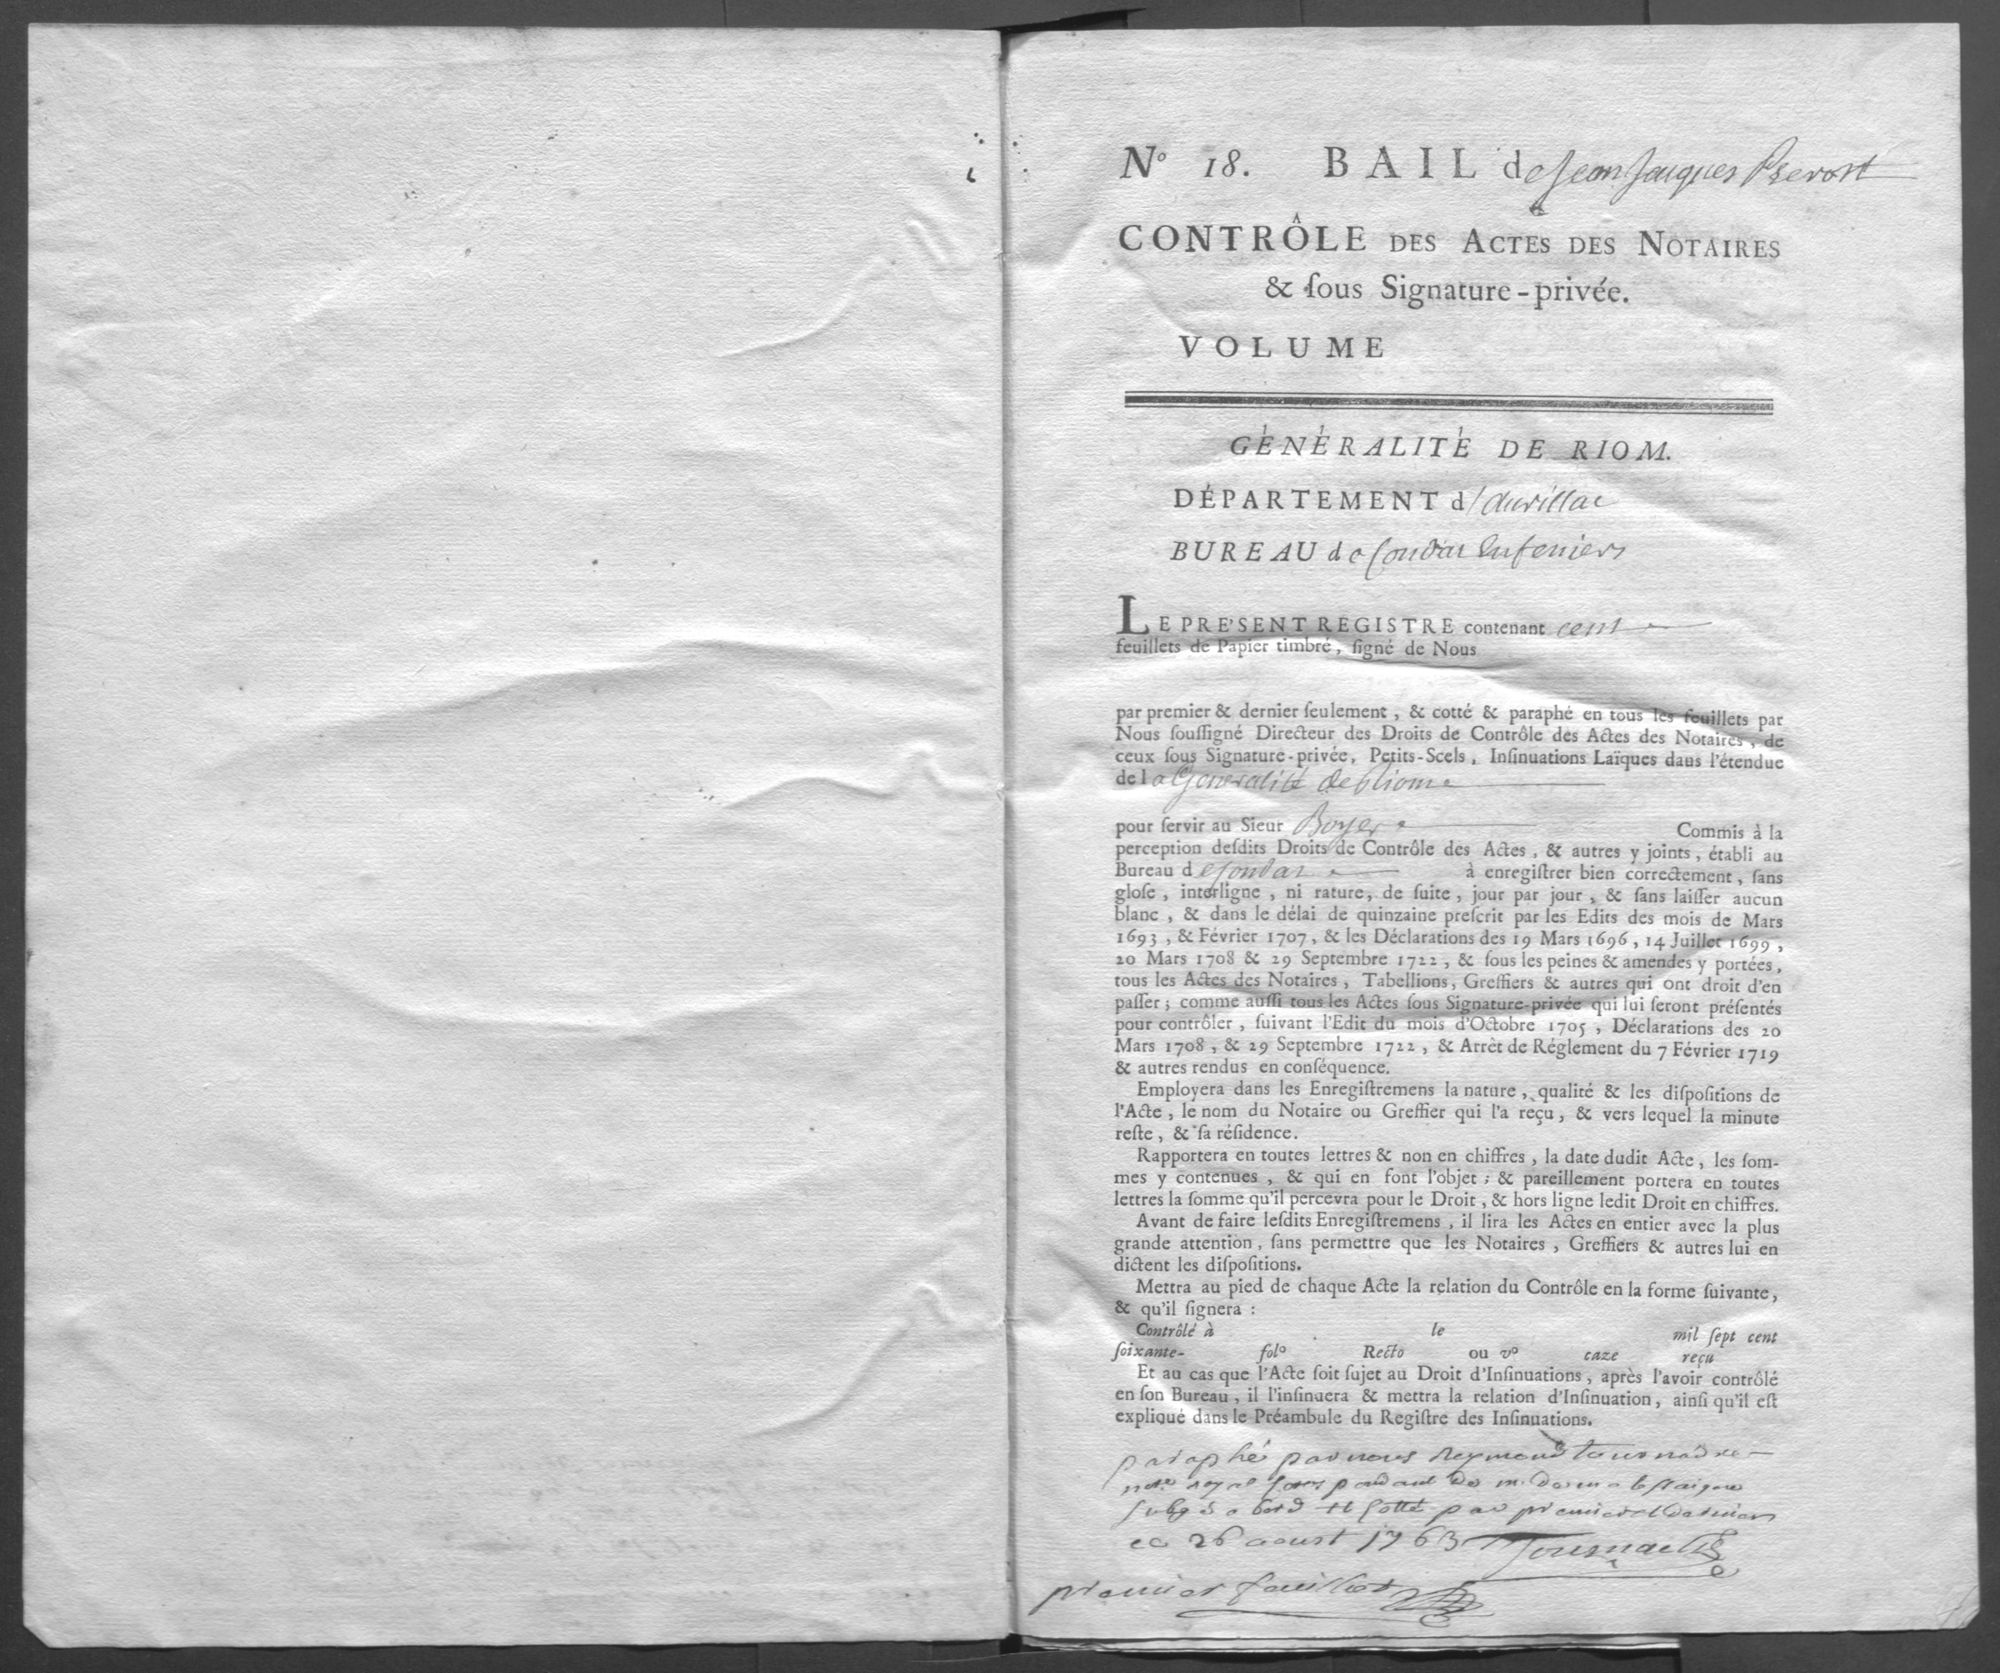 Nº 18. BAIL de Jean Jacques Prevost
CONTRÔLE DES ACTES DES NOTAIRES
& ſous Signature-privée.
VOLUME
GÉNÉRALITÉ DE RIOM.
DÉPARTEMENT d'aurillac
BUREAU de Condat en feniers
LE PRE'SENT REGISTRE contenant cent
feuillets de Papier timbré, ſigné de Nous
par premier & dernier ſeulement, & cotté & paraphé en tous les feuillets par
Nous ſouſſigné Directeur des Droits de Contrôle des Actes des Notaires, de
ceux ſous Signature-privée, Petits-Scels, Inſinuations Laïques dans l'étendue
de la Generalité de Riom
pour ſervir au Sieur Boyer Commis à la
perception deſdits Droits de Contrôle des Actes, & autres y joints, établi au
Bureau de Condat à enregiſtrer bien correctement, ſans
gloſe, interligne, ni rature, de ſuite, jour par jour, & ſans laiſſer aucun
blanc, & dans le délai de quinzaine preſcrit par les Edits des mois de Mars
1693, & Février 1707, & les Déclarations des 19 Mars 1696, 14 Juillet 1699,
20 Mars 1708 & 29 Septembre 1722, & ſous les peines & amendes y portées,
tous les Actes des Notaires, Tabellions, Greffiers & autres qui ont droit d'en
paſſer; comme auſſi tous les Actes ſous Signature-privée qui lui ſeront préſentés
pour contrôler, ſuivant l'Edit du mois d'Octobre 1705, Déclarations des 20
Mars 1708, & 29 Septembre 1722, & Arrêt de Réglement du 7 Février 1719
& autres rendus en conſéquence.
Employera dans les Enregiſtremens la nature, qualité & les diſpoſitions de
l'Acte, le nom du Notaire ou Greffier qui l'a reçu, & vers lequel la minute
reſte, & ſa réſidence.
Rapportera en toutes lettres & non en chiffres, la date dudit Acte, les ſom-
mes y contenues, & qui en font l'objet; & pareillement portera en toutes
lettres la ſomme qu'il percevra pour le Droit, & hors ligne ledit Droit en chiffres.
Avant de faire leſdits Enregiſtremens, il lira les Actes en entier avec la plus
grande attention, ſans permettre que les Notaires, Greffiers & autres lui en
dictent les diſpoſitions.
Mettra au pied de chaque Acte la relation du Contrôle en la forme ſuivante,
& qu'il ſignera :
Contrôlé à le mil ſept cent
ſoixante- folº Recto ou vº caze reçu
Et au cas que l'Acte ſoit ſujet au Droit d'Inſinuations, après l'avoir contrôlé
en ſon Bureau, il l'inſinuera & mettra la relation d'Inſinuation, ainſi qu'il eſt
expliqué dans le Préambule du Regiſtre des Inſinuations.
paraphé par nous Reymond tournadre
royal
et Cotté par premier et dernier
ce 26 aoust 1763 Tournadre
premier feuillet